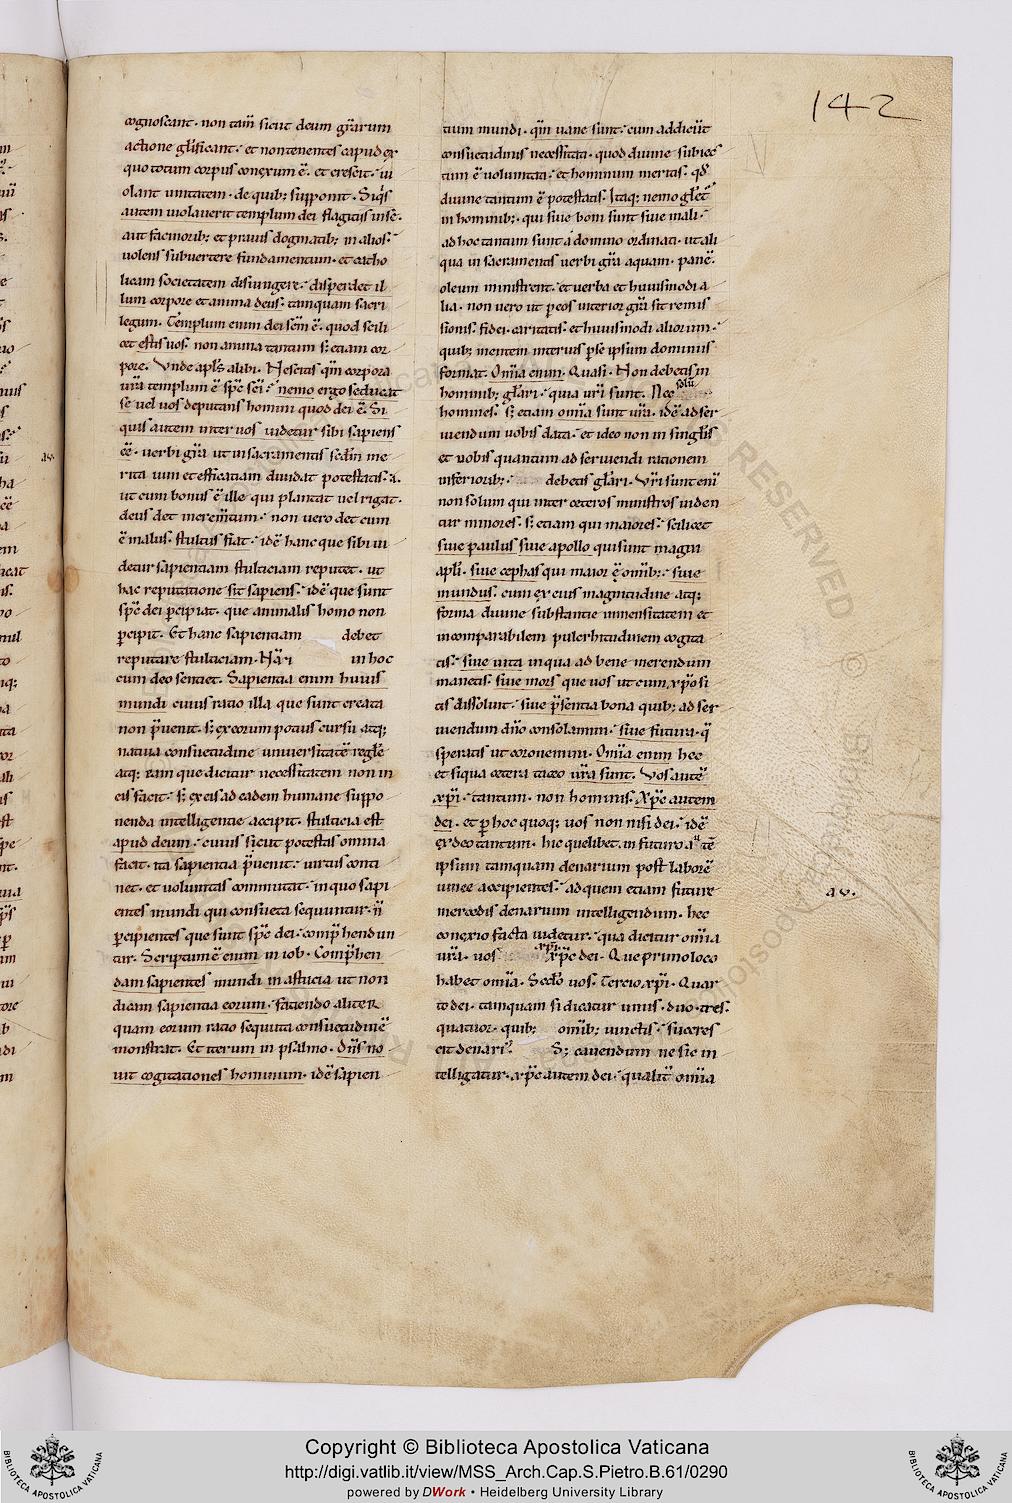 142
cognoscant· non tam̄ sicut deum gr̄arum
actione gl̄ificant· et non tenentes capud ex
quo totum corpus conexum ē· et crescit· ui
olant unitatem· de quib; supponit· Siq̄s
autem uiolauerit templum dei flagitiis in se·
aut facinorib; et prauis dogmatib; in alios·
uolens subuertere fundamentum· et catho
licam societatem disiungere· disperdet il
lum corpore et anima deus· tamquam sacri
legum· Templum enim dei sc̄m ē· quod scili
cet estis uos· non anima tantum s; etiam cor
pore· Vnde apl̄s alibi· Nescitis qm̄ corpora
ur̄a templum ē sp̄c sc̄i· nemo ergo seducat
se uel uos deputans homini quod dei ē· Si
quis autem inter uos uidetur sibi sapiens
ēē· uerbi gr̄a ut in sacramentis sedm̄ me
av·
rita uim et efficatiam diuidat potestatis·
ut cum bonus ē ille qui plantat uel rigat·
deus det increm̄tum· non uero det cum
ē malus· stultus fiat· idē hanc que sibi ui
detur sapientiam stulticiam reputet· ut
hac reputatione sit sapiens· idē que sunt
sp̄c dei p̄cipiat· que animalis homo non
p̄cipit· Et hanc sapientiam debet
reputare stulticiam· in hoc
cum deo sentiet· Sapientia enim huius
mundi cuius ratio illa que sunt creata
non p̄uenit· s; ex eorum potius cursu atq;
natiua consuetudine uniuersitatē
atq; eam que dicitur necessitatem non in
eis facit· s; ex eis ad eadem humane suppo
nenda intelligentie accipit· stulticia est
apud deum· cuius sicut potestas omnia
facit· ita sapientia p̄uenit· uirtus conti
net· et uoluntas commutat· in quo sapi
entes mundi qui consueta sequuntur· n̄
p̄cipientes que sunt sp̄c dei· comp̄hendun
tur· Scriptum ē enim in iob· Comp̄hen
dam sapientes mundi in astucia ut non
dicam sapientia eorum· faciendo aliter
quam eorum ratio sequuta consuetudinē
monstrat· Et iterum in psalmo· Dn̄s no
uit cogitationes hominum· idē sapien
tium mundi· qm̄ uane sunt· cum addicūt
consuetudinis necessitati· quod diuine subiec
tum ē uoluntati· et hominum meritis·
diuine tantum ē potestatis· Itaq; nemo
in hominib; qui siue boni sunt siue mali·
ad hoc tantum sunt a domino ordinati· ut ali
qua in sacramentis uerbi gr̄a aquam· panē·
oleum ministrent· et uerba et huiusmodi a
lia· non uero ut p eos interior gr̄a sit remis
sionis· fidei· caritatis· et huiusmodi aliorum·
quib; mentem interius p se ipsum dominus
format· Om̄ia enim· Quasi· Non debetis in
hominib; gl̄ari· quia ur̄i sunt· Nec solū
homines· s; etiam om̄ia sunt ur̄a· idē ad ser
uiendum uobis data· et ideo non in singl̄is
et uobis quantum ad seruiendi rationem
inferiorib; debetis gl̄ari· Vr̄i sunt eni
non solum qui inter ceteros ministros uiden
tur minores· s; etiam qui maiores· scilicet
siue paulus siue apollo qui sunt magni
apl̄i· siue cephas qui maior ē om̄ib; siue
mundus· cum ex eius magnitudine atq;
forma diuine substantie inmensitatem et
incomparabilem pulcrhitudinem cogita
tis· siue uita in qua ad bene merendum
manetis· siue mors que uos ut cum xp̄o si
tis dissoluit· siue p̄sentia bona quib; ad ser
uiendum dn̄o consolamini· siue futura· q̄
speratis ut coronemini· Om̄ia enim hec
et siqua cetera taceo ur̄a sunt· Vos autē
xp̄i· tantum· non hominis· Xp̄c autem
dei· et p̄ hoc quoq; uos non nisi dei· idē
ex deo tantum· hic quelibet· in futuro
ipsum tamquam denarium post laborē
uinee accipientes· ad quem etiam future
av·
mercedis denarium intelligendum· hec
conexio facta uidetur· qua dicitur om̄ia
ur̄a· uos xp̄i Xp̄c dei· Que primo loco
habet om̄ia· Secd̄o uos· Tercio xp̄i· Quar
to dei· tamquam si dicatur unus· duo· tres·
quatuor· quib; om̄ib; iunctis· succres
cit denari᷒· S; cauendum ne sic in
telligatur· xp̄c autem dei· qualit̄ om̄ia
Copyright © Biblioteca Apostolica Vaticana
http://digi.vatlib.it/view/MSS_Arch.Cap.S.Pietro.B.61/0290
powered by DWork • Heidelberg University Library
BIBLIOTECA APOSTOLICA VATICANA
BIBLIOTECA APOSTOLICA VATICANA